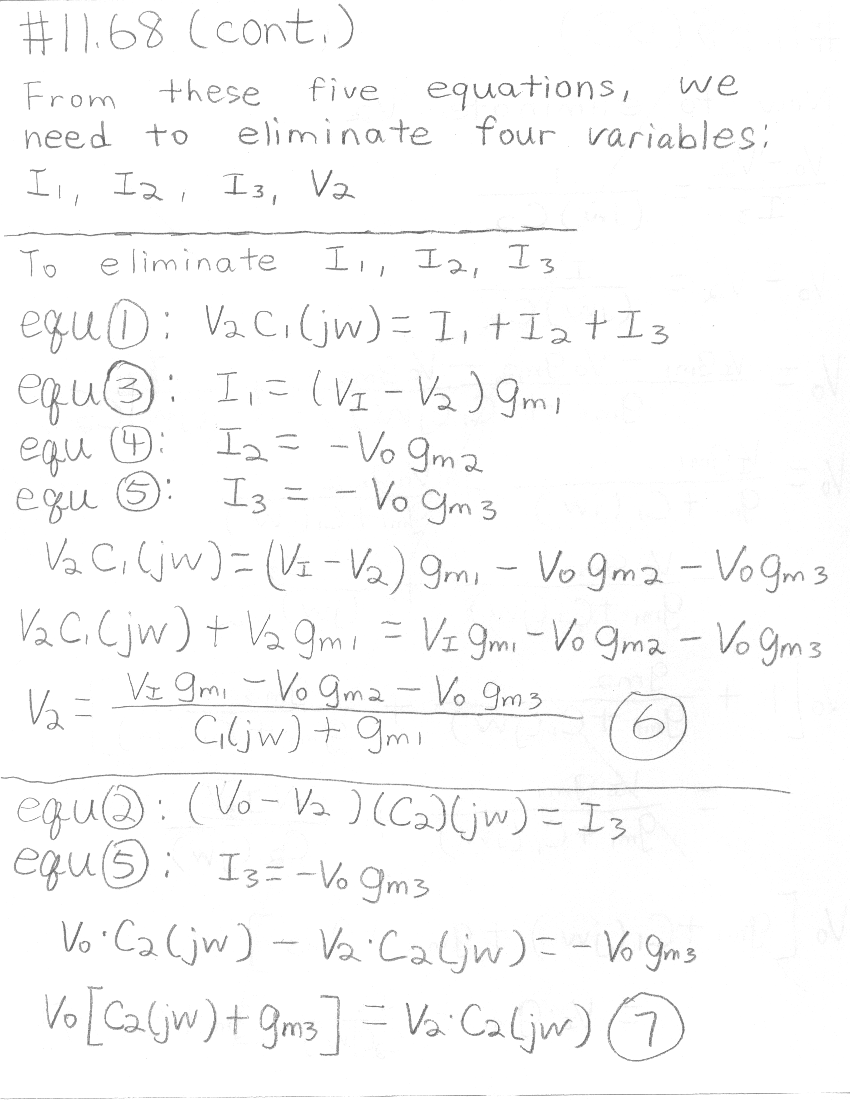 #11.68 (cont.)
From these five equations, we
need to eliminate four variables:
I₁, I₂, I₃, V₂
To eliminate I₁, I₂, I₃
equ①: V₂C₁(jw) = I₁ + I₂ + I₃
equ③: I₁ = (V_I - V₂) g_m1
equ ④: I₂ = -V₀ g_m2
equ ⑤: I₃ = -V₀ g_m3
V₂C₁(jw) = (V_I - V₂) g_m1 - V₀ g_m2 - V₀ g_m3
V₂C₁(jw) + V₂ g_m1 = V_I g_m1 - V₀ g_m2 - V₀ g_m3
V₂ = (V_I g_m1 - V₀ g_m2 - V₀ g_m3) / (C₁(jw) + g_m1) ⑥
equ②: (V₀ - V₂)(C₂)(jw) = I₃
equ⑤: I₃ = -V₀ g_m3
V₀·C₂(jw) - V₂·C₂(jw) = -V₀ g_m3
V₀[C₂(jw) + g_m3] = V₂·C₂(jw) ⑦